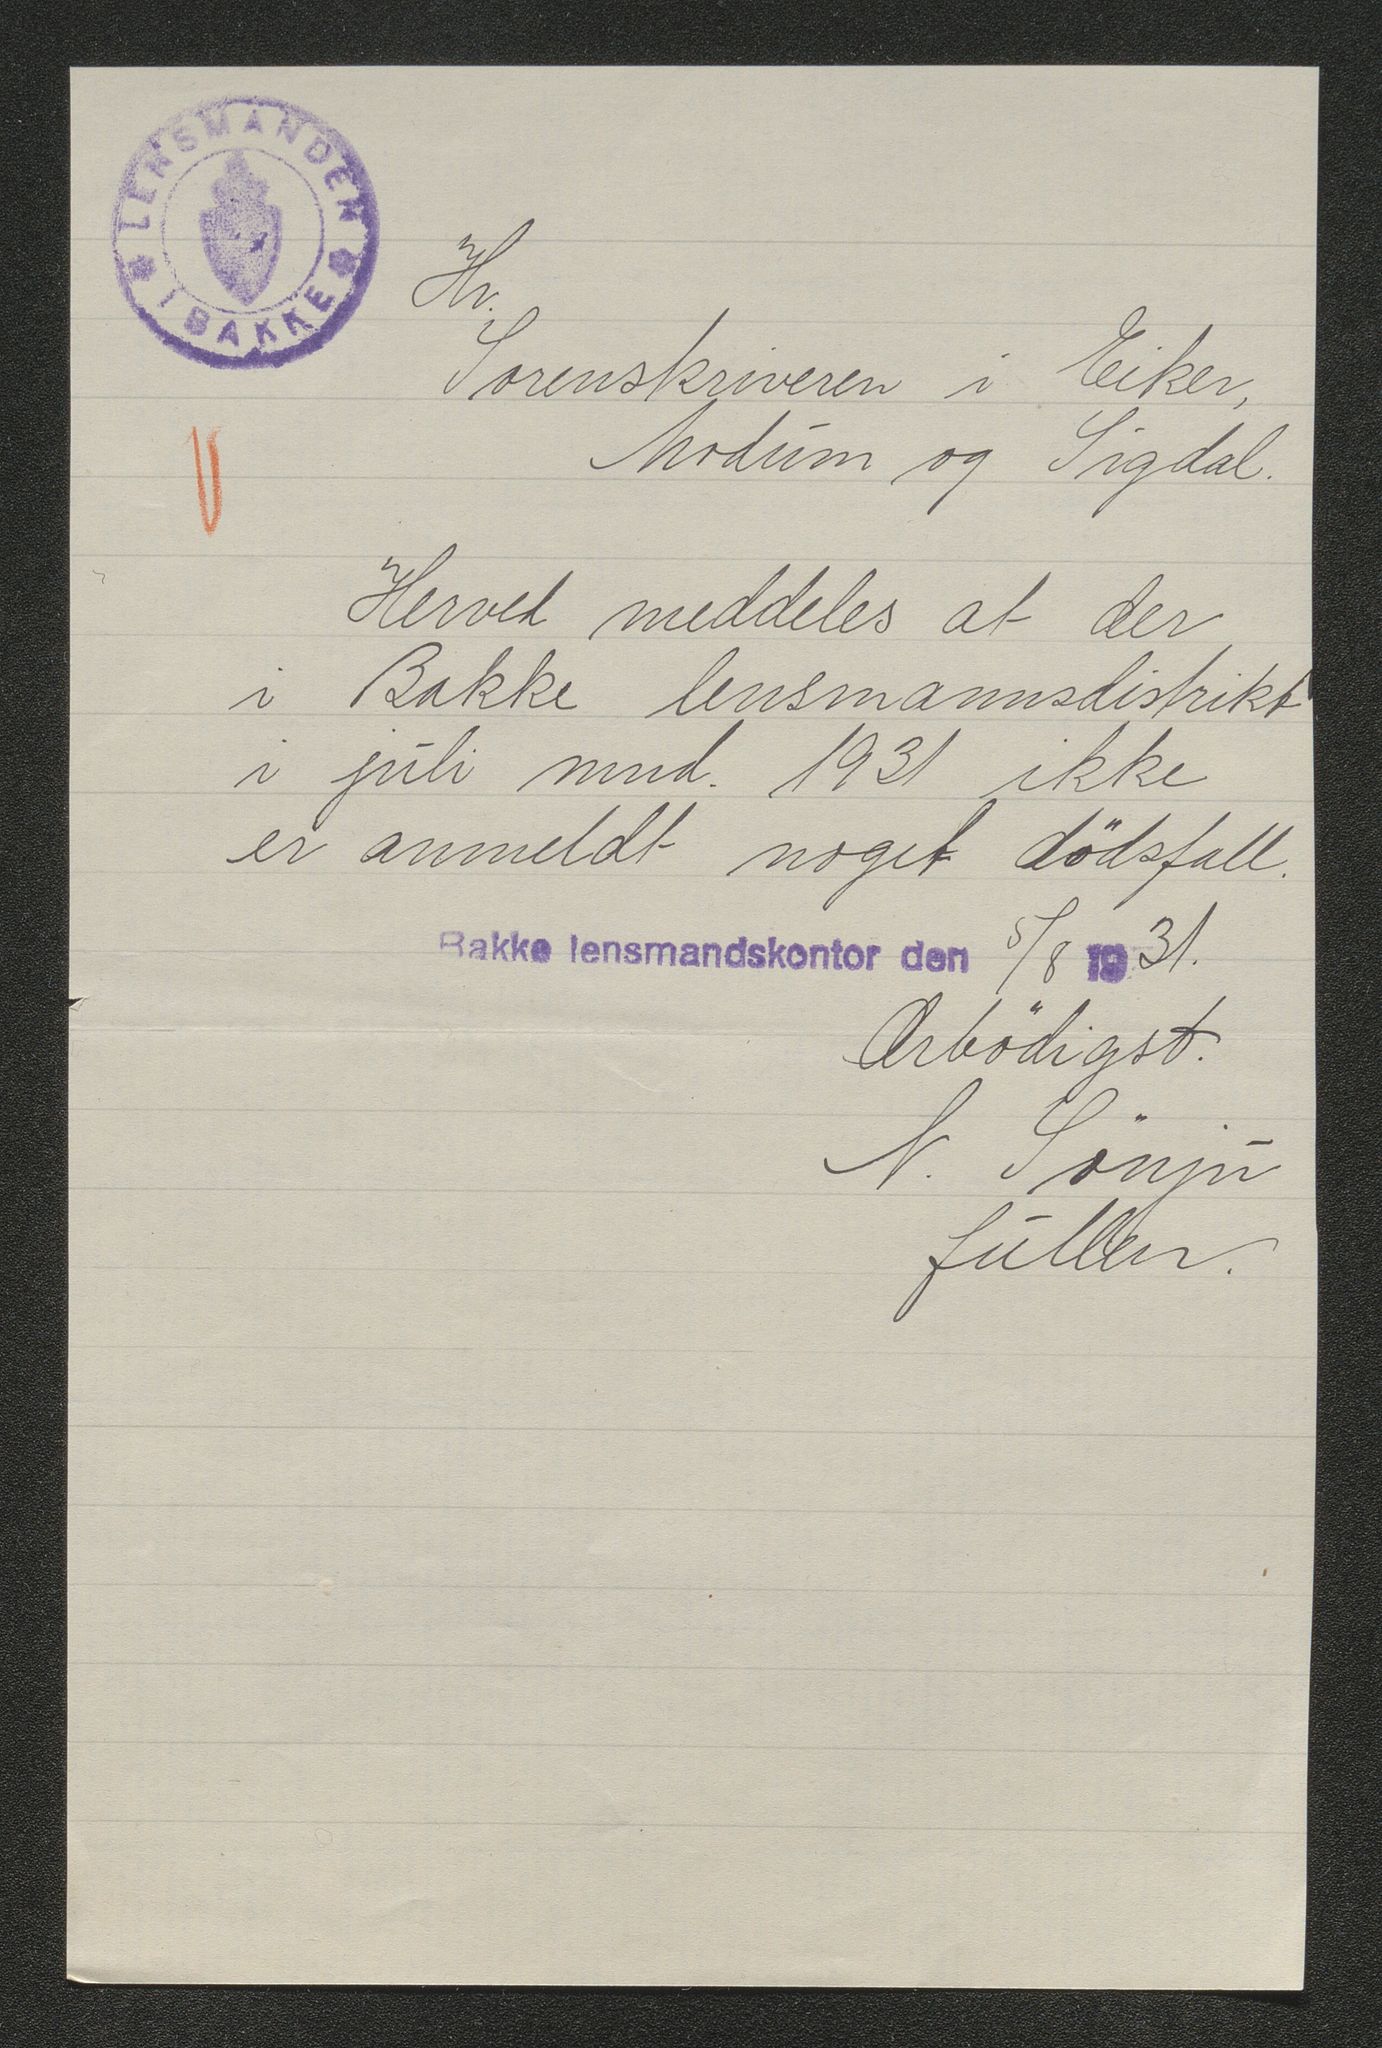 LENSMANDEN
I BAKKE
Hr.
Sorenskriveren i Eiker,
Modum og Sigdal.
Herved meddeles at der
i Bakke lensmannsdistrikt
i juli mnd. 1931 ikke
er anmeldt noget dödsfall.
Bakke lensmandskontor den 5/8 1931.
Ærbödigst.
N. Sönju
fullm.